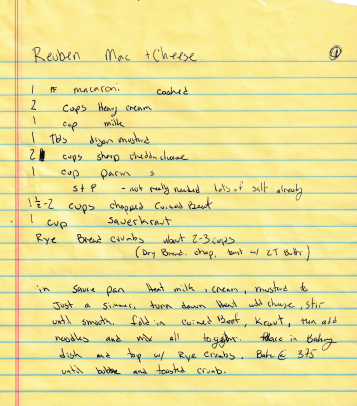 Reuben Mac + Cheese ①
1 # macaroni cooked
2 cups Heavy cream
1 cup milk
1 Tbls dijon mustard
2 cups sharp cheddar cheese
1 cup parm
S + P - not really needed lots of salt already
1 ½-2 cups chopped Corned Beef
1 cup Sauerkraut
Rye Bread crumbs about 2-3 cups
(Dry Bread, chop, w/ 2T Buttr)
in sauce pan Heat milk, cream, mustard to
Just a simmer, turn down Heat add cheese, stir
until smooth. fold in corned Beef, Kraut, then add
noodles and mix all together. Place in Baking
dish and top w/ Rye Crumbs. Bake @ 375
until bubble and toasted crumb.